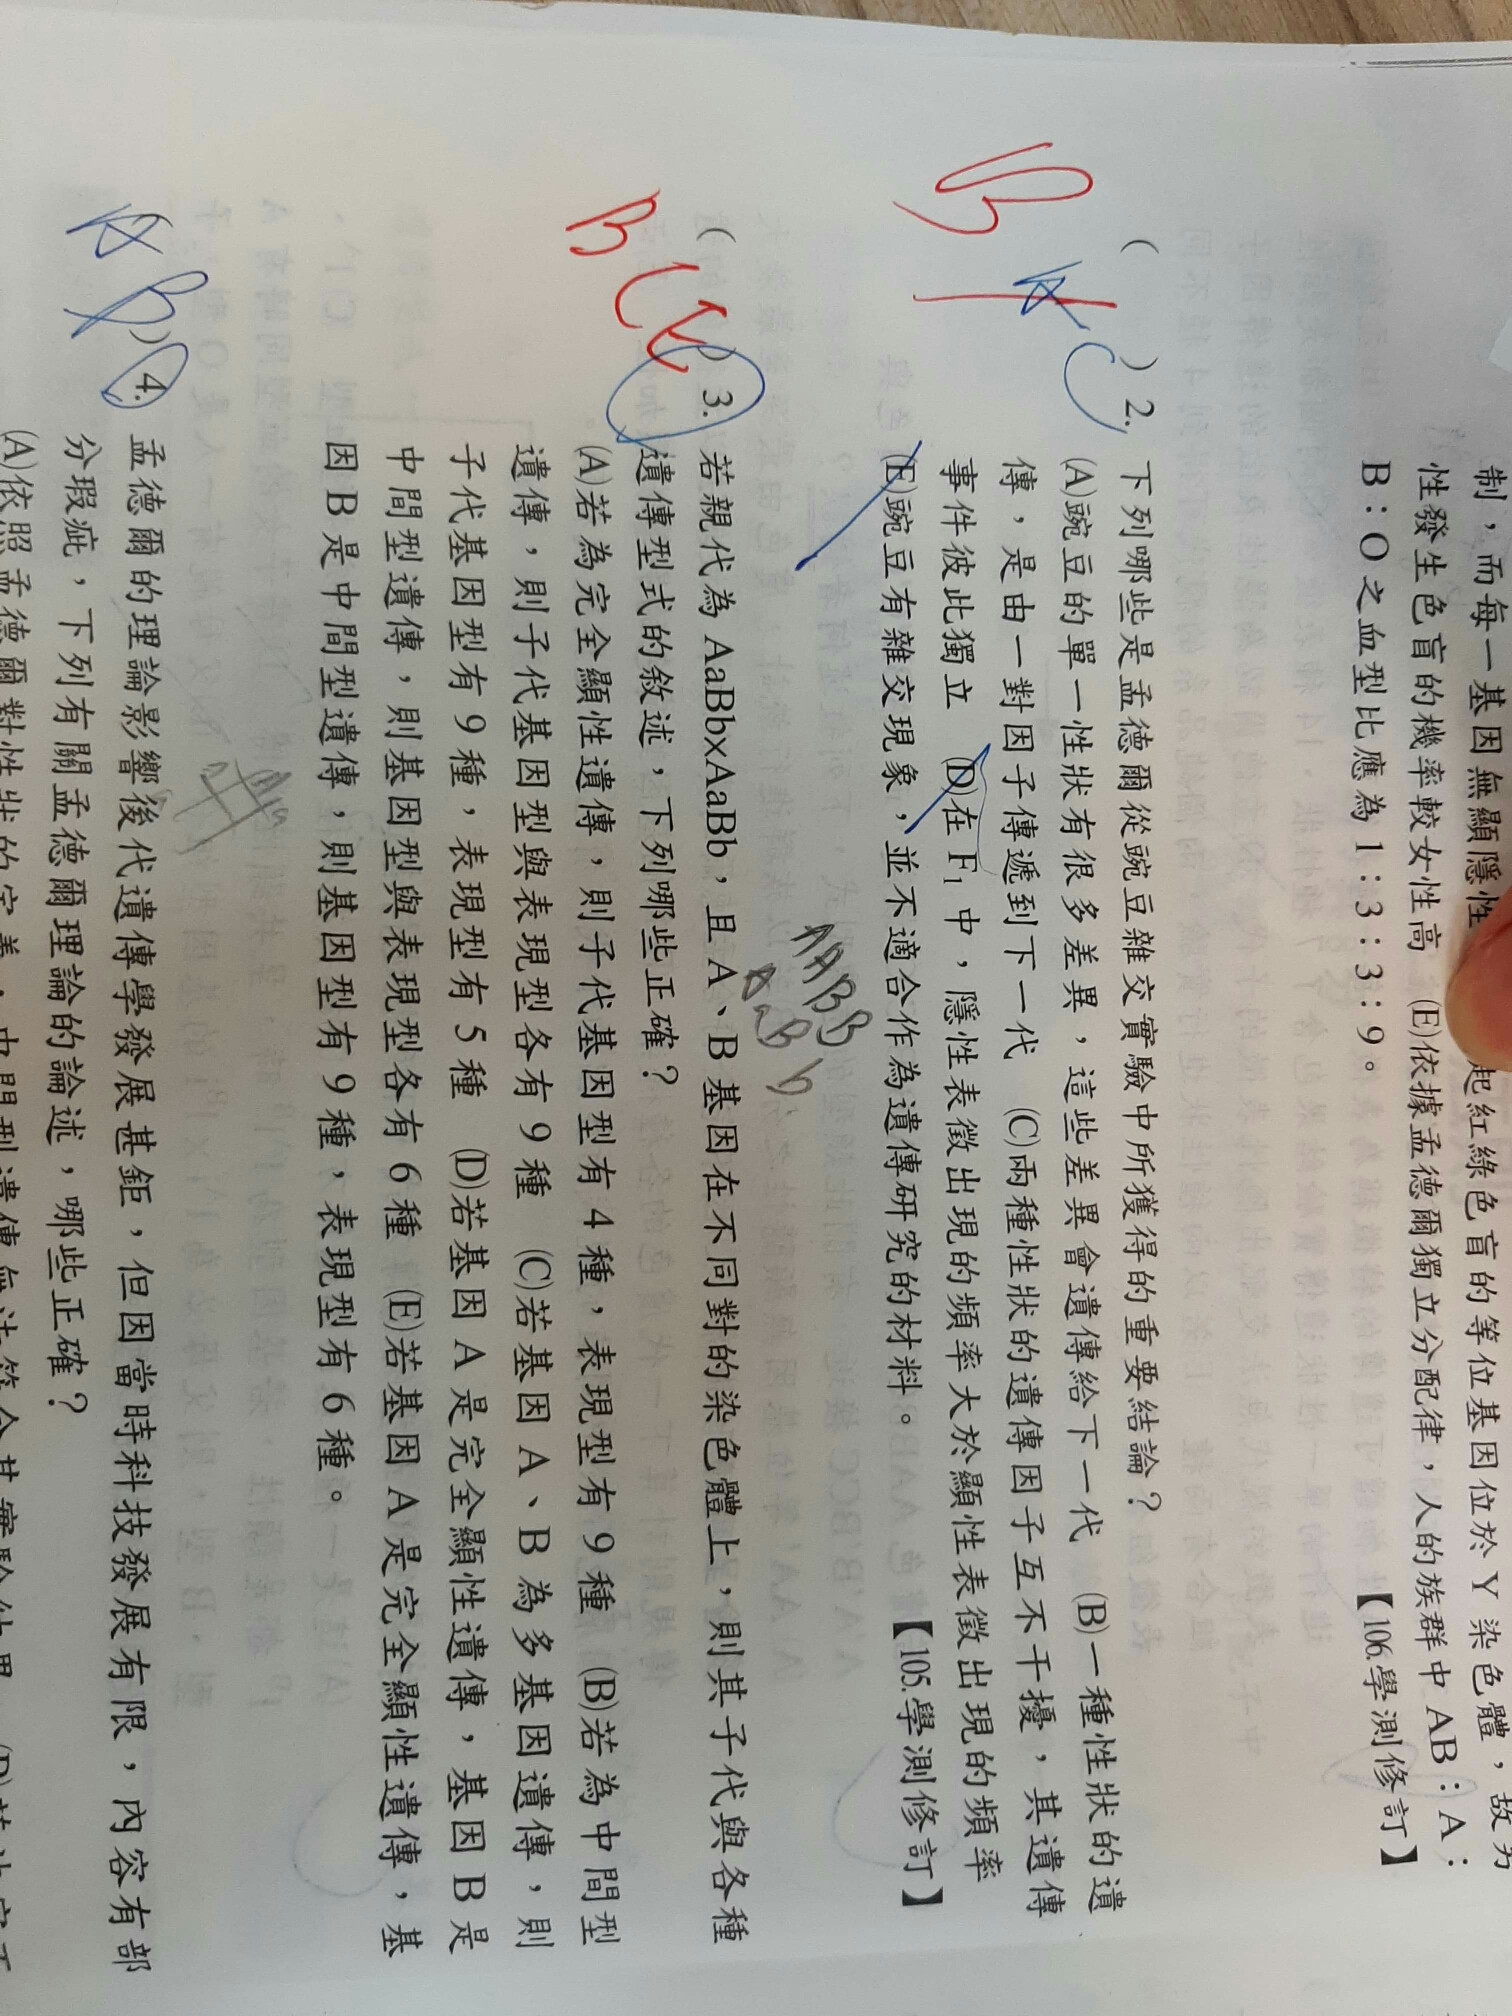 制，而每一基因無顯隱性
起紅綠色盲的等位基因位於 Y 染色體，故为
性發生色盲的機率較女性高 (E)依據孟德爾獨立分配律，人的族群中 AB：A：
B：O 之血型比應為 1：3：3：9。
【106.學測修訂】
B
A C
( ) 2. 下列哪些是孟德爾從豌豆雜交實驗中所獲得的重要結論？
(A)豌豆的單一性狀有很多差異，這些差異會遺傳給下一代 (B)一種性狀的遺
傳，是由一對因子傳遞到下一代 (C)兩種性狀的遺傳因子互不干擾，其遺傳
事件彼此獨立 (D)在 F₁ 中，隱性表徵出現的頻率大於顯性表徵出現的頻率
(E)豌豆有雜交現象，並不適合作為遺傳研究的材料。
【105.學測修訂】
AABB
AaBb
B C
( ) 3. 若親代為 AaBbxAaBb，且 A、B 基因在不同對的染色體上，則其子代與各種
遺傳型式的敘述，下列哪些正確？
(A)若為完全顯性遺傳，則子代基因型有 4 種，表現型有 9 種 (B)若為中間型
遺傳，則子代基因型與表現型各有 9 種 (C)若基因 A、B 為多基因遺傳，則
子代基因型有 9 種，表現型有 5 種 (D)若基因 A 是完全顯性遺傳，基因 B 是
中間型遺傳，則基因型與表現型各有 6 種 (E)若基因 A 是完全顯性遺傳，基
因 B 是中間型遺傳，則基因型有 9 種，表現型有 6 種。
A B
) 4. 孟德爾的理論影響後代遺傳學發展甚鉅，但因當時科技發展有限，內容有部
分瑕疵，下列有關孟德爾理論的論述，哪些正確？
(A)依照孟德爾對性狀的定義，中間型遺傳無法符合其實驗結果